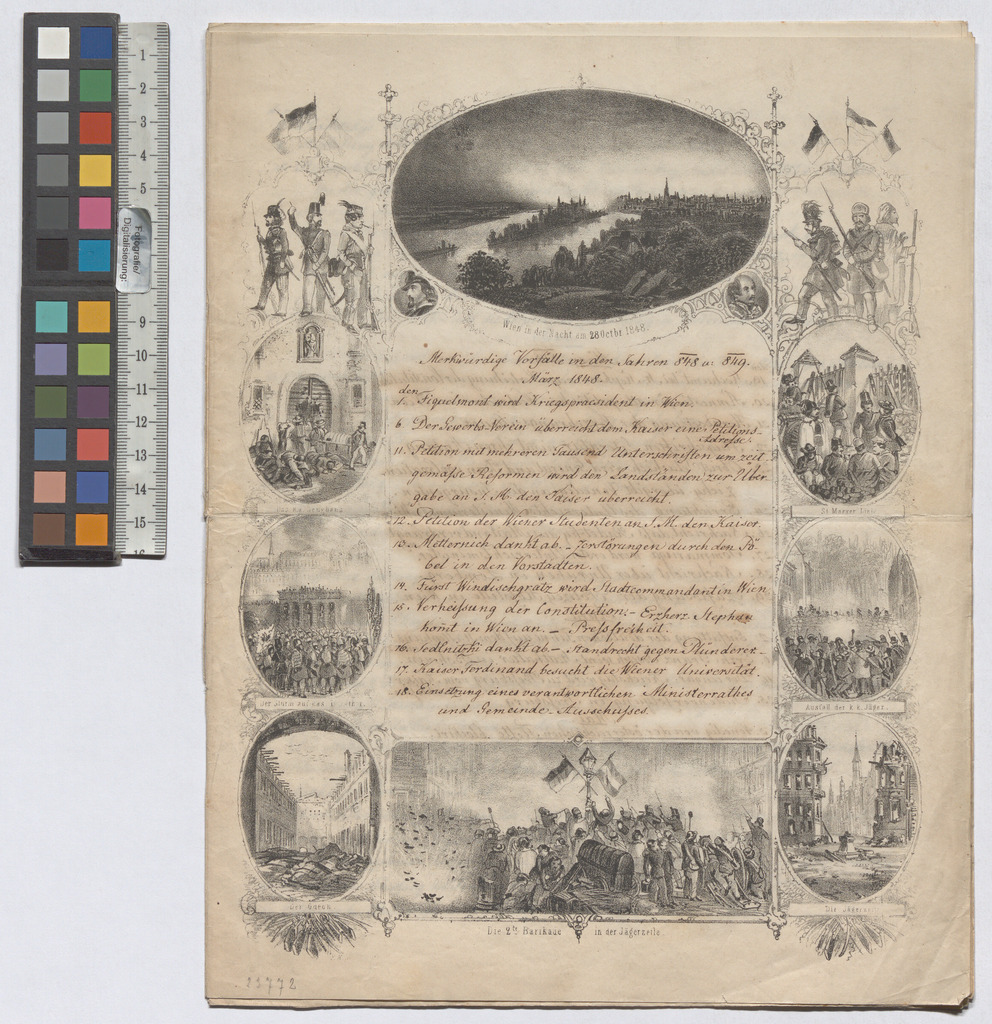 Wien in der Nacht am 28 Octbr 1848.
Merkwürdige Vorfälle in den Jahren 848 u. 849.
März 1848.
den
1. Fiquelmont wird Kriegspraesident in Wien.
6 Der Gewerbs-Verein überreicht dem Kaiser eine Petitions-
Adresse.
11. Petition mit mehreren Tausend Unterschriften um zeit
gemäße Reformen wird den Landständen zur Über
gabe an S. M. den Kaiser überreicht.
12. Petition der Wiener Studenten an S. M. den Kaiser.
13. Metternich dankt ab. – Zerstörungen durch den Pö
bel in den Vorstädten.
14. Fürst Windischgrätz wird Stadtcommandant in Wien.
15. Verheißung der Constitution. – Erzherz. Stephan
kom̄t in Wien an. – Preßfreiheit.
16. Sedlnitzki dankt ab. – Standrecht gegen Plünderer. –
17. Kaiser Ferdinand besucht die Wiener Universität.
18. Einsetzung eines verantwortlichen Ministerrathes
und Gemeinde-Ausschußes.
St Marxer Linie
Der Sturm auf das
Ausfall der k. k. Jäger.
Die Jägerzeile
Die 2te Barikade in der Jägerzeile.
23772
Fotografie/
Digitalisierung:
1
2
3
4
5
9
10
11
12
13
14
15
16